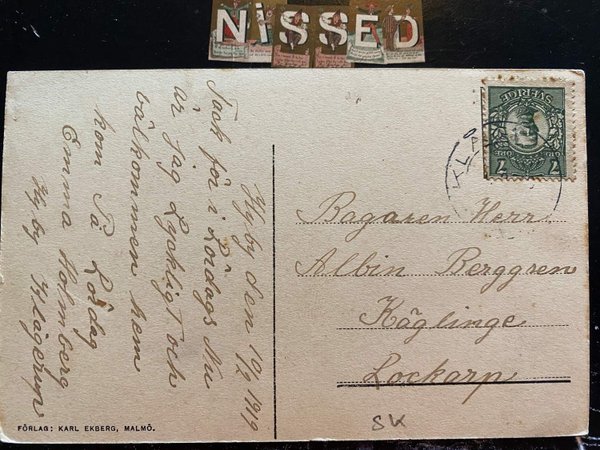 NiSSED
Hyby den 10/2 1919
Tack för i Lördags Nu
är jag Lyckligt och
välkommen hem
kom På Lördag
Emma Holmberg
Hyby
SVERIGE
7 7
Bagaren Herr
Albin Berggren
Käglinge
Lockarp
SK
FÖRLAG: KARL EKBERG, MALMÖ.